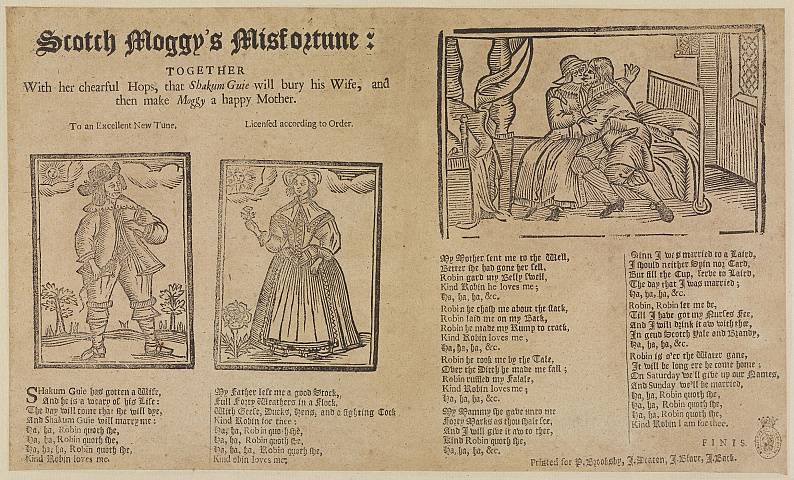 Scotch Moggy's Misfortune:
TOGETHER
With her chearful Hops, that Shakum Guie will bury his Wife, and
then make Moggy a happy Mother.
To an Excellent New Tune.
Licensed according to Order.
SHakum Guie has gotten a Wife,
And he is a weary of his Life:
The day will come that she will dye,
And Shakum Guie will marry me:
Ha, ha, Robin quoth she,
Ha, ha, Robin quoth she,
Ha, ha, ha, Robin quoth she,
Kind Robin loves me.
My Father left me a good Stock,
Full Forty Weathers in a Flock,
With Geese, Ducks, Hens, and a fighting Cock
Kind Robin for thee:
Ha, ha, Robin quoth she,
Ha, ha, Robin quoth she,
Ha, ha, ha, Robin quoth she,
Kind obin loves me;
My Mother sent me to the Well,
Better she had gone her sell,
Robin gard my Belly swell,
Kind Robin he loves me;
Ha, ha, ha, &c.
Robin he chast me about the stack,
Robin laid me on my Back,
Robin he made my Rump to crack,
Kind Robin loves me,
Ha, ha, ha, &c.
Robin he took me by the Tale,
Over the Ditch he made me fall;
Robin ruffled my
Kind Robin loves me;
Ha, ha, ha, &c.
My Mammy she gave unto me
Forty Marks as thou shale see,
And I will give it aw to thee,
Kind Robin quoth she,
Ha, ha, ha, &c.
Sinn I was married to a Laird,
I should neither Spin nor Card,
But fill the Cup, serve to Laird,
The day that I was married;
Ha, ha, ha, &c.
Robin, Robin let me be,
Till I have got my Nurses Fee,
And I will drink it aw with thee,
In geud Scotch Yale and Brandy,
Ha, ha, ha, &c.
Robin is o'er the Water gane,
It will be long ere he come home;
On Saturday we'll give up our Names,
And Sunday we'll be married,
Ha, ha, Robin quoth she,
Ha, ha, Robin quoth she,
Ha, ha, ha, Robin quoth she,
Kind Robin I am for thee.
FINIS.
Printed for P. Brooksby, J. Deacon, J. Blare, J. Back.